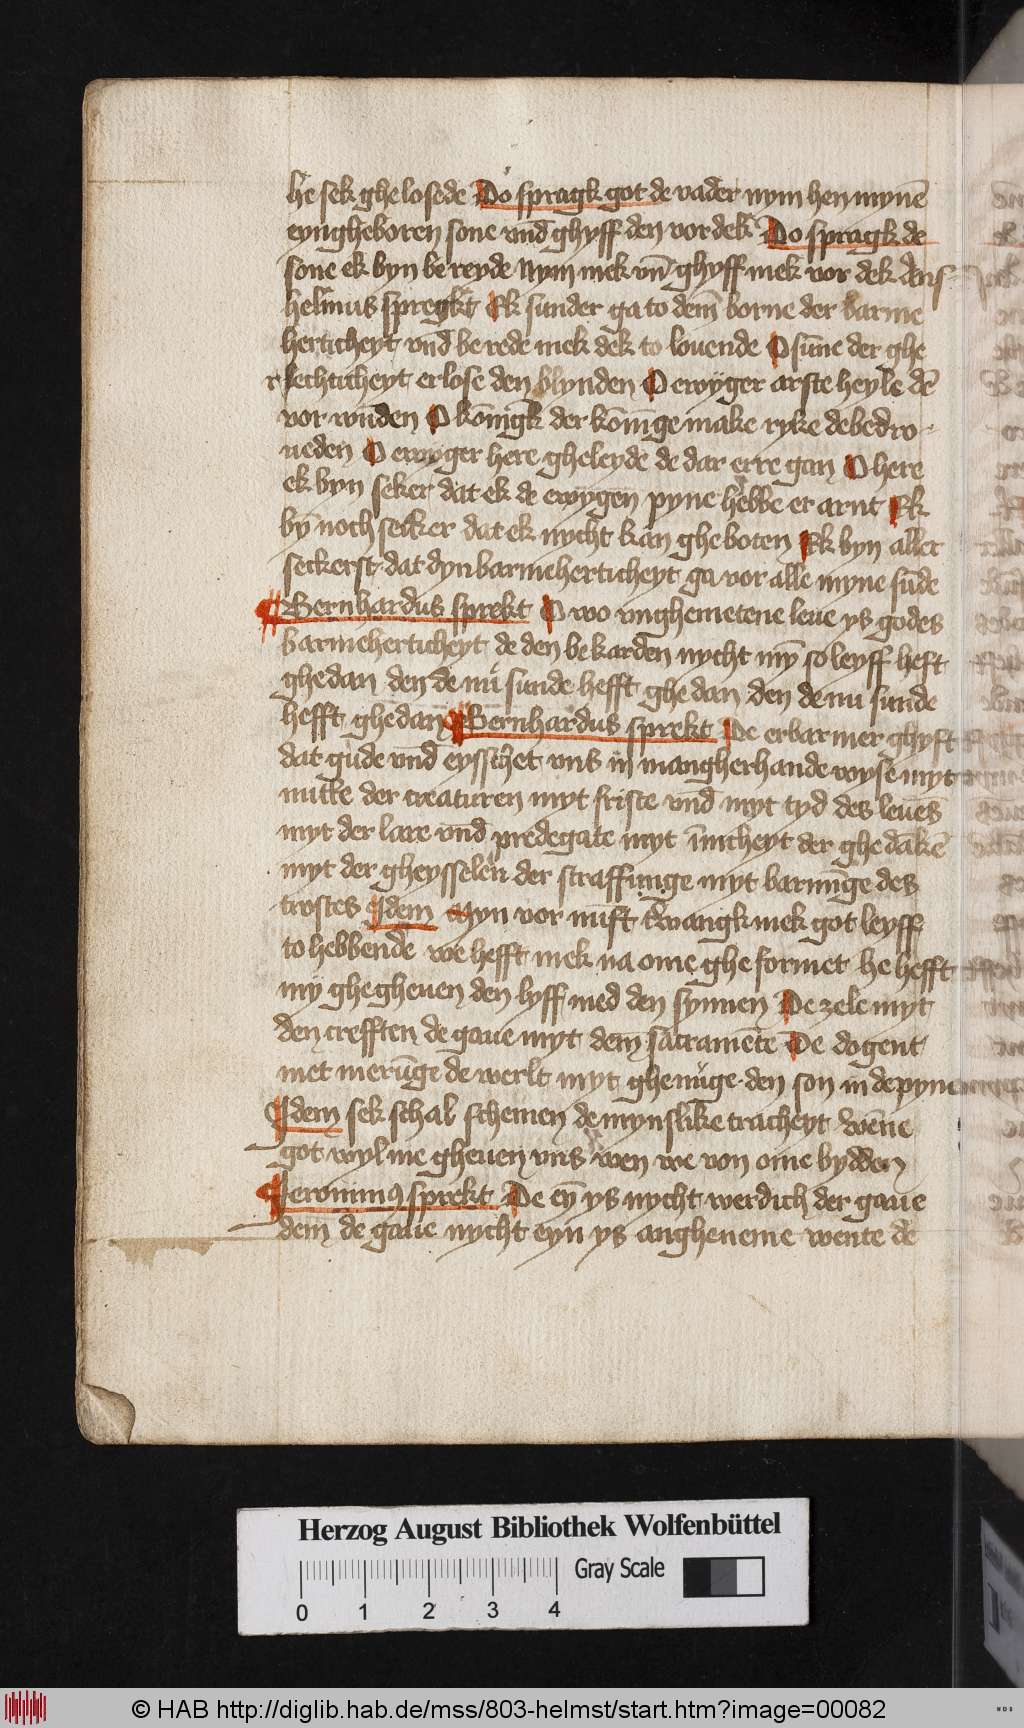 he sek ghe losede Do spragk got de vader nym hen mynē
eyngheboren sone vnd ghyff den vor dek Do spragk de
sone ek byn be reyde Nym mek vn̄ ghyff mek vor dek Ans
helmus spregkt Ek sunder ga to dem borne der barme
herticheyt vnd be rede mek dek to louende O sūne der ghe
rechticheyt erlose den blynden O ewyger arste heyle dē
vor wūden O kōningk der kōninge make ryke de bedro
ueden O ewyger here gheleyde de dar erre gan O here
ek byn seker dat ek de ewygen pyne hebbe er arnt Ek
byn noch secker dat ek nycht kan ghe boten Ek byn aller
seckerst dat dyn barmeherticheyt ga vor alle myne sūde
Bernhardus sprekt O wo vnghemetene leue ys godes
barmeherticheyt de den bekarden nycht myn̄ so leyff heft
ghedan den de nů sunde hefft ghe dan den de nu sunde
hefft ghe dan Bernhardus sprekt De erbarmer ghyft
dat gude vnd eysschet vns in mangherhande wyse myt
nutte der creaturen myt friste vnd myt tyd des leuēs
myt der lare vnd predegate myt īnicheyt der ghe dākē
myt der gheysselen der straffunge myt barmūge des
trostes Idem Myn vor nūft twangk mek got leyff
to hebbende we hefft mek na ome ghe formet he hefft
my ghegheuen den lyff med den synnen De zele myt
den crefften de gaue myt dem sacramēte De dogent
met merūge de werlt myt ghenůge den son in de pyne
Idem sek schal schemen de mynslike tracheyt wēne
got wyl me gheuen vns wen we von ome bydden
Jeronimus sprekt De eyn̄ ys nycht werdich der gaue
dem de gaue nycht eyn ys angheneme wente de
Herzog August Bibliothek Wolfenbüttel
Gray Scale
0 1 2 3 4
© HAB http://diglib.hab.de/mss/803-helmst/start.htm?image=00082